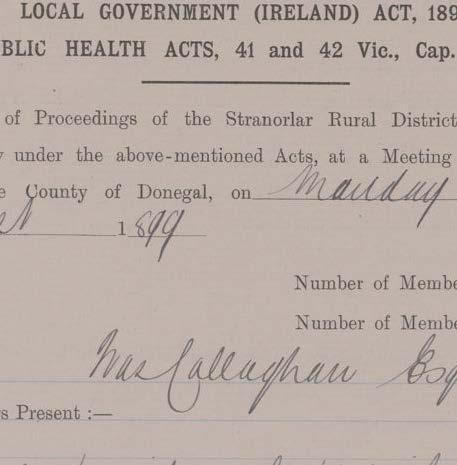 LOCAL GOVERNMENT (IRELAND) ACT, 189
BLIC HEALTH ACTS, 41 and 42 Vic., Cap.
of Proceedings of the Stranorlar Rural District
y under the above-mentioned Acts, at a Meeting
e County of Donegal, on Monday
1899
Number of Membe
Number of Membe
Callaghan Esq
s Present :—